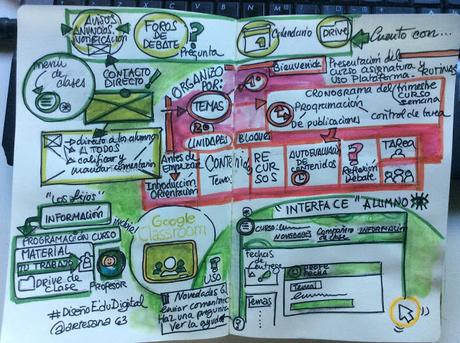 AVISOS
ANUNCIOS
NOTIFICACIÓN
FOROS
DE
DEBATE
?
Pregunta
Calendario
DRIVE
Cuento con...
menú
de
clases
CONTACTO
DIRECTO
ORGANIZO
POR:
TEMAS
UNIDADES
BLOQUES
Bienvenida
Presentación del
curso asignatura y
Uso Plataforma.
RUTINAS
CRONOGRAMA del trimestre
CURSO
semana
Programación
de publicaciones
control de tarea
directo a los alumnos
A TODOS
calificar y
mandar comentarios
Antes de
EMPEZAR
Introducción
Orientación
CONTENIDOS
Tema
RE
CUR
SOS
AUTOEVALUACIÓN
DE
CONTENIDOS
?
Reflexión
Debate
TAREA
"Los fijos"
INFORMACIÓN
PROGRAMACIÓN CURSO
MATERIAL
TU TRABAJO
Drive de
clase
Profesor
#DiseñoEduDigital
@artesana63
móvil
Google
Classroom
USO
Novedades
enviar comentario
Haz una pregunta
Ver la ayuda
"INTERFACE" ALUMNO
CURSO:
NOVEDADES
Compañeros
de clase
INFORMACIÓN
fechas
de
entrega
Temas
PROFE
FECHA
Tema 1